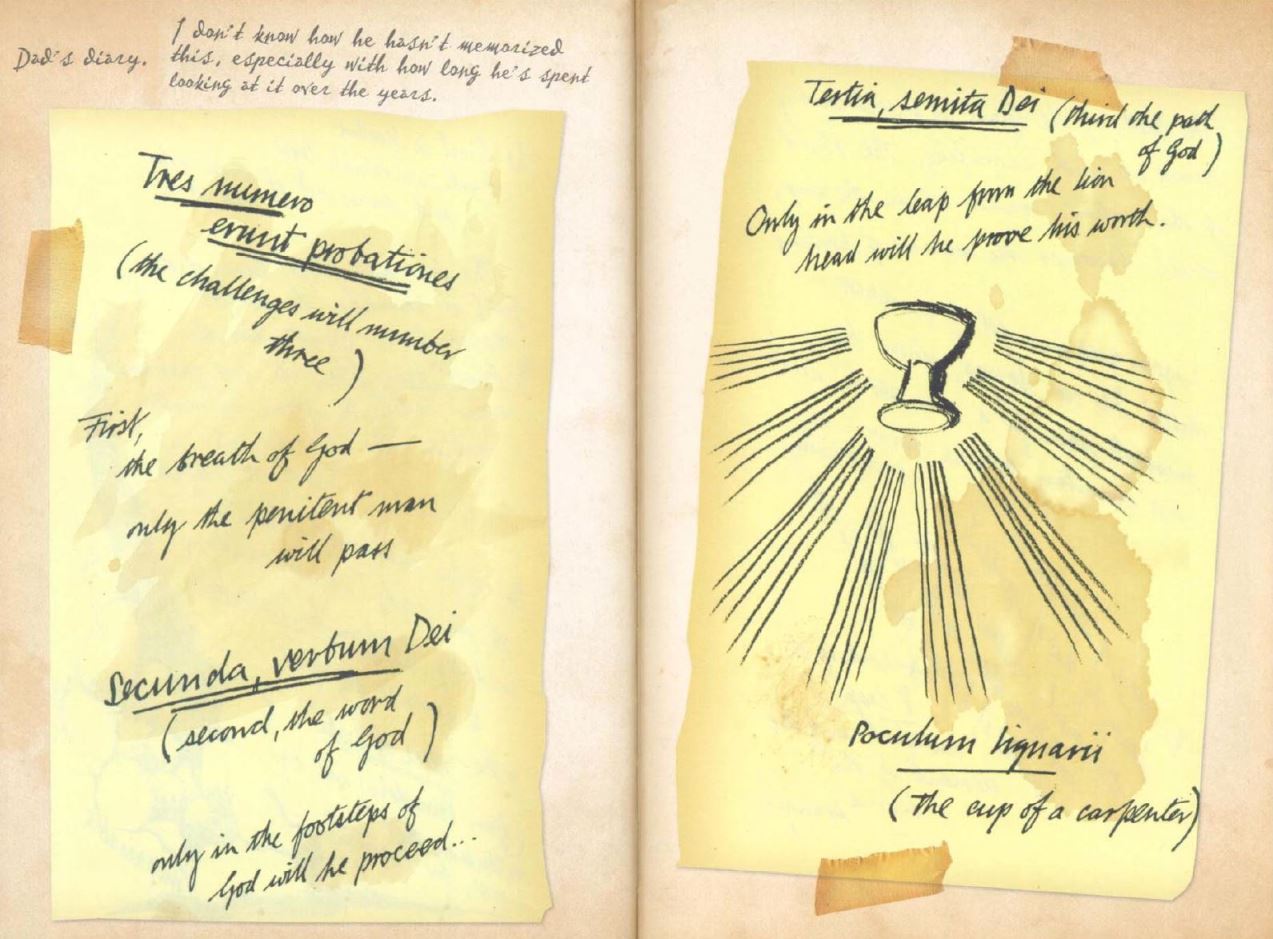 Dad's diary.
I don't know how he hasn't memorized
this, especially with how long he's spent
looking at it over the years.
Tres numero
erunt probationes
(the challenges will number
three)
First,
the breath of God —
only the penitent man
will pass
Secunda, verbum Dei
(second, the word
of God)
only in the footsteps of
God will he proceed...
Tertia, semita Dei (third the path
of God)
Only in the leap from the lion
head will he prove his worth.
Poculum lignarii
(the cup of a carpenter)